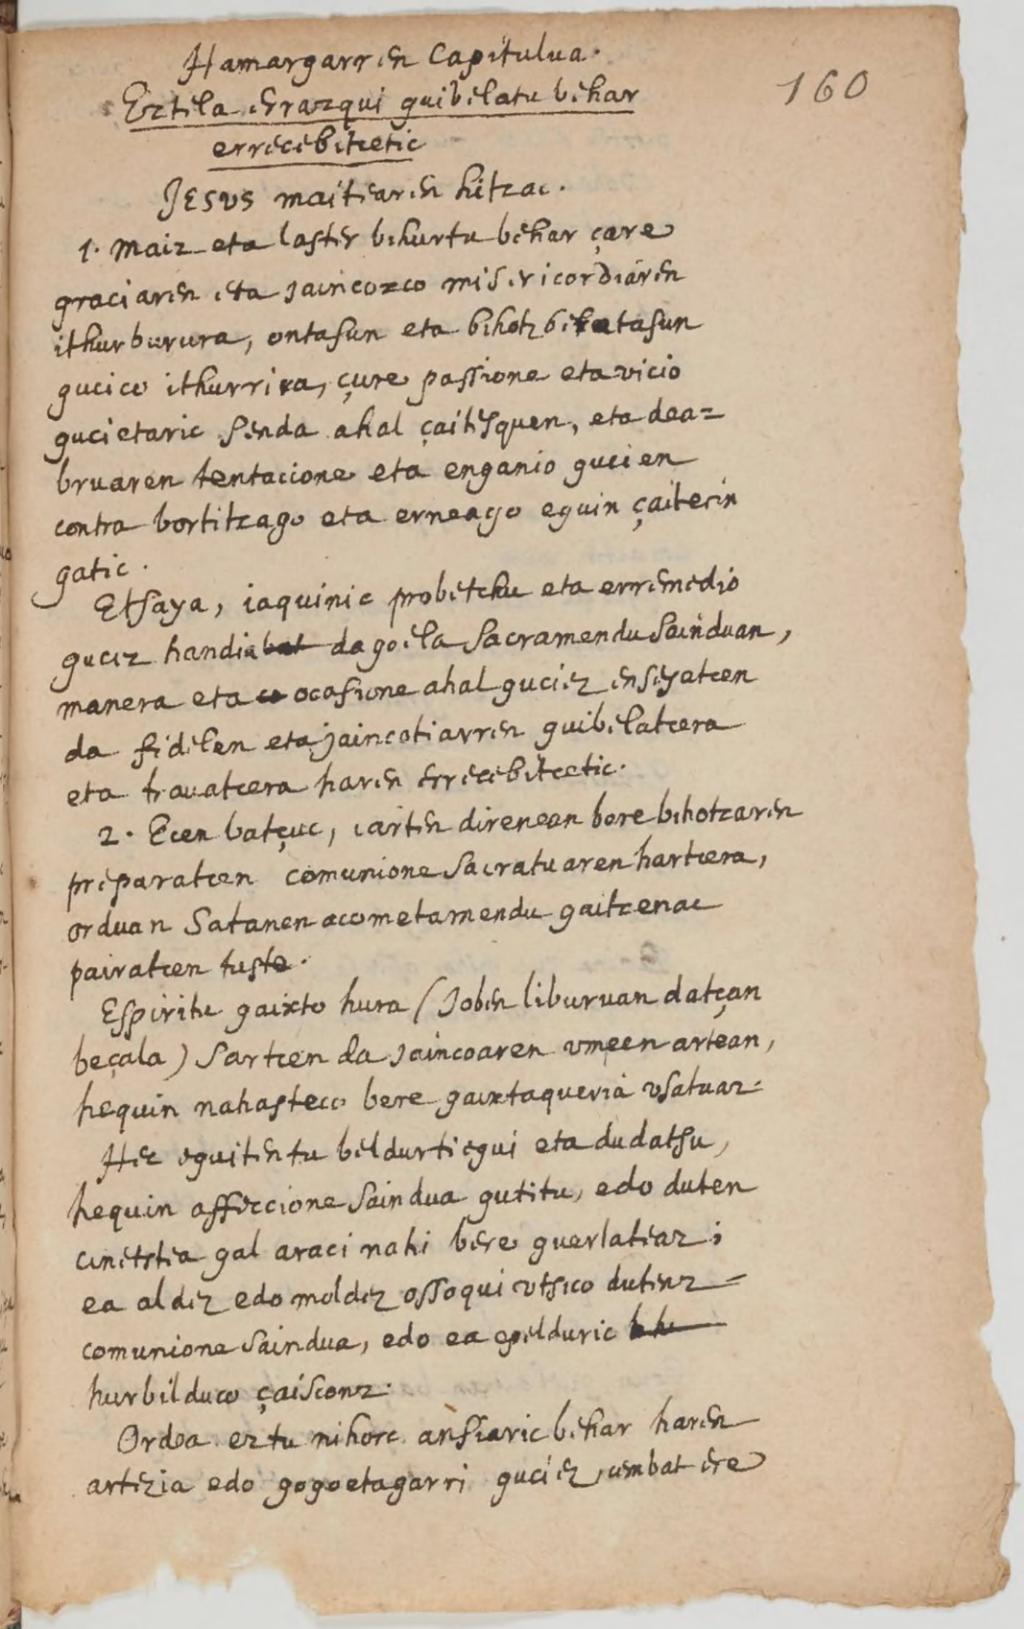 Hamargarren Capitulua.
160
Eztela errazqui guibelatu behar
errecebitcetic
JESVS maitiaren hitzac.
1. Maiz eta laster bihurtu behar çare
graciaren eta Jaincozco misericordiaren
ithurburura, ontasun eta bihotz beratasun
gucico ithurrira, çure passione eta vicio
gucietaric senda ahal çaitesquen, eta dea=
bruaren tentacione eta enganio gucien
contra bortitzago eta erneago eguin çaitecin
gatic.
Etsaya, iaquinic probetchu eta erremedio
gucez handia dagoela Sacramendu Sainduan,
manera eta ocasione ahal guciez enseyatcen
da fidelen eta jaincotiarren guibelatcera
eta trauatcera haren errecebitcetic.
2. Ecen batçuc, iarten direnean bere bihotzaren
preparatcen comunione sacratuaren hartcera,
orduan Satanen acometamendu gaitcenac
pairatcen tuste.
Espiritu gaixto hura (Joben liburuan datçan
beçala) sartcen da Jaincoaren vmeen artean,
hequin nahasteco bere gaixtaqueria vsatuaz.
Hec eguiten tu beldurtiegui eta dudatsu,
hequin affeccione saindua gutitu, edo duten
cinetstea gal araci nahi bere guerlateaz;
ea aldez edo moldez ossoqui vtsico dutenz
comunione saindua, edo ea epelduric
hurbilduco çaisconz.
Ordea eztu nihorc ansiaric behar haren
artezia edo gogoetagarri guciez, cembat ere